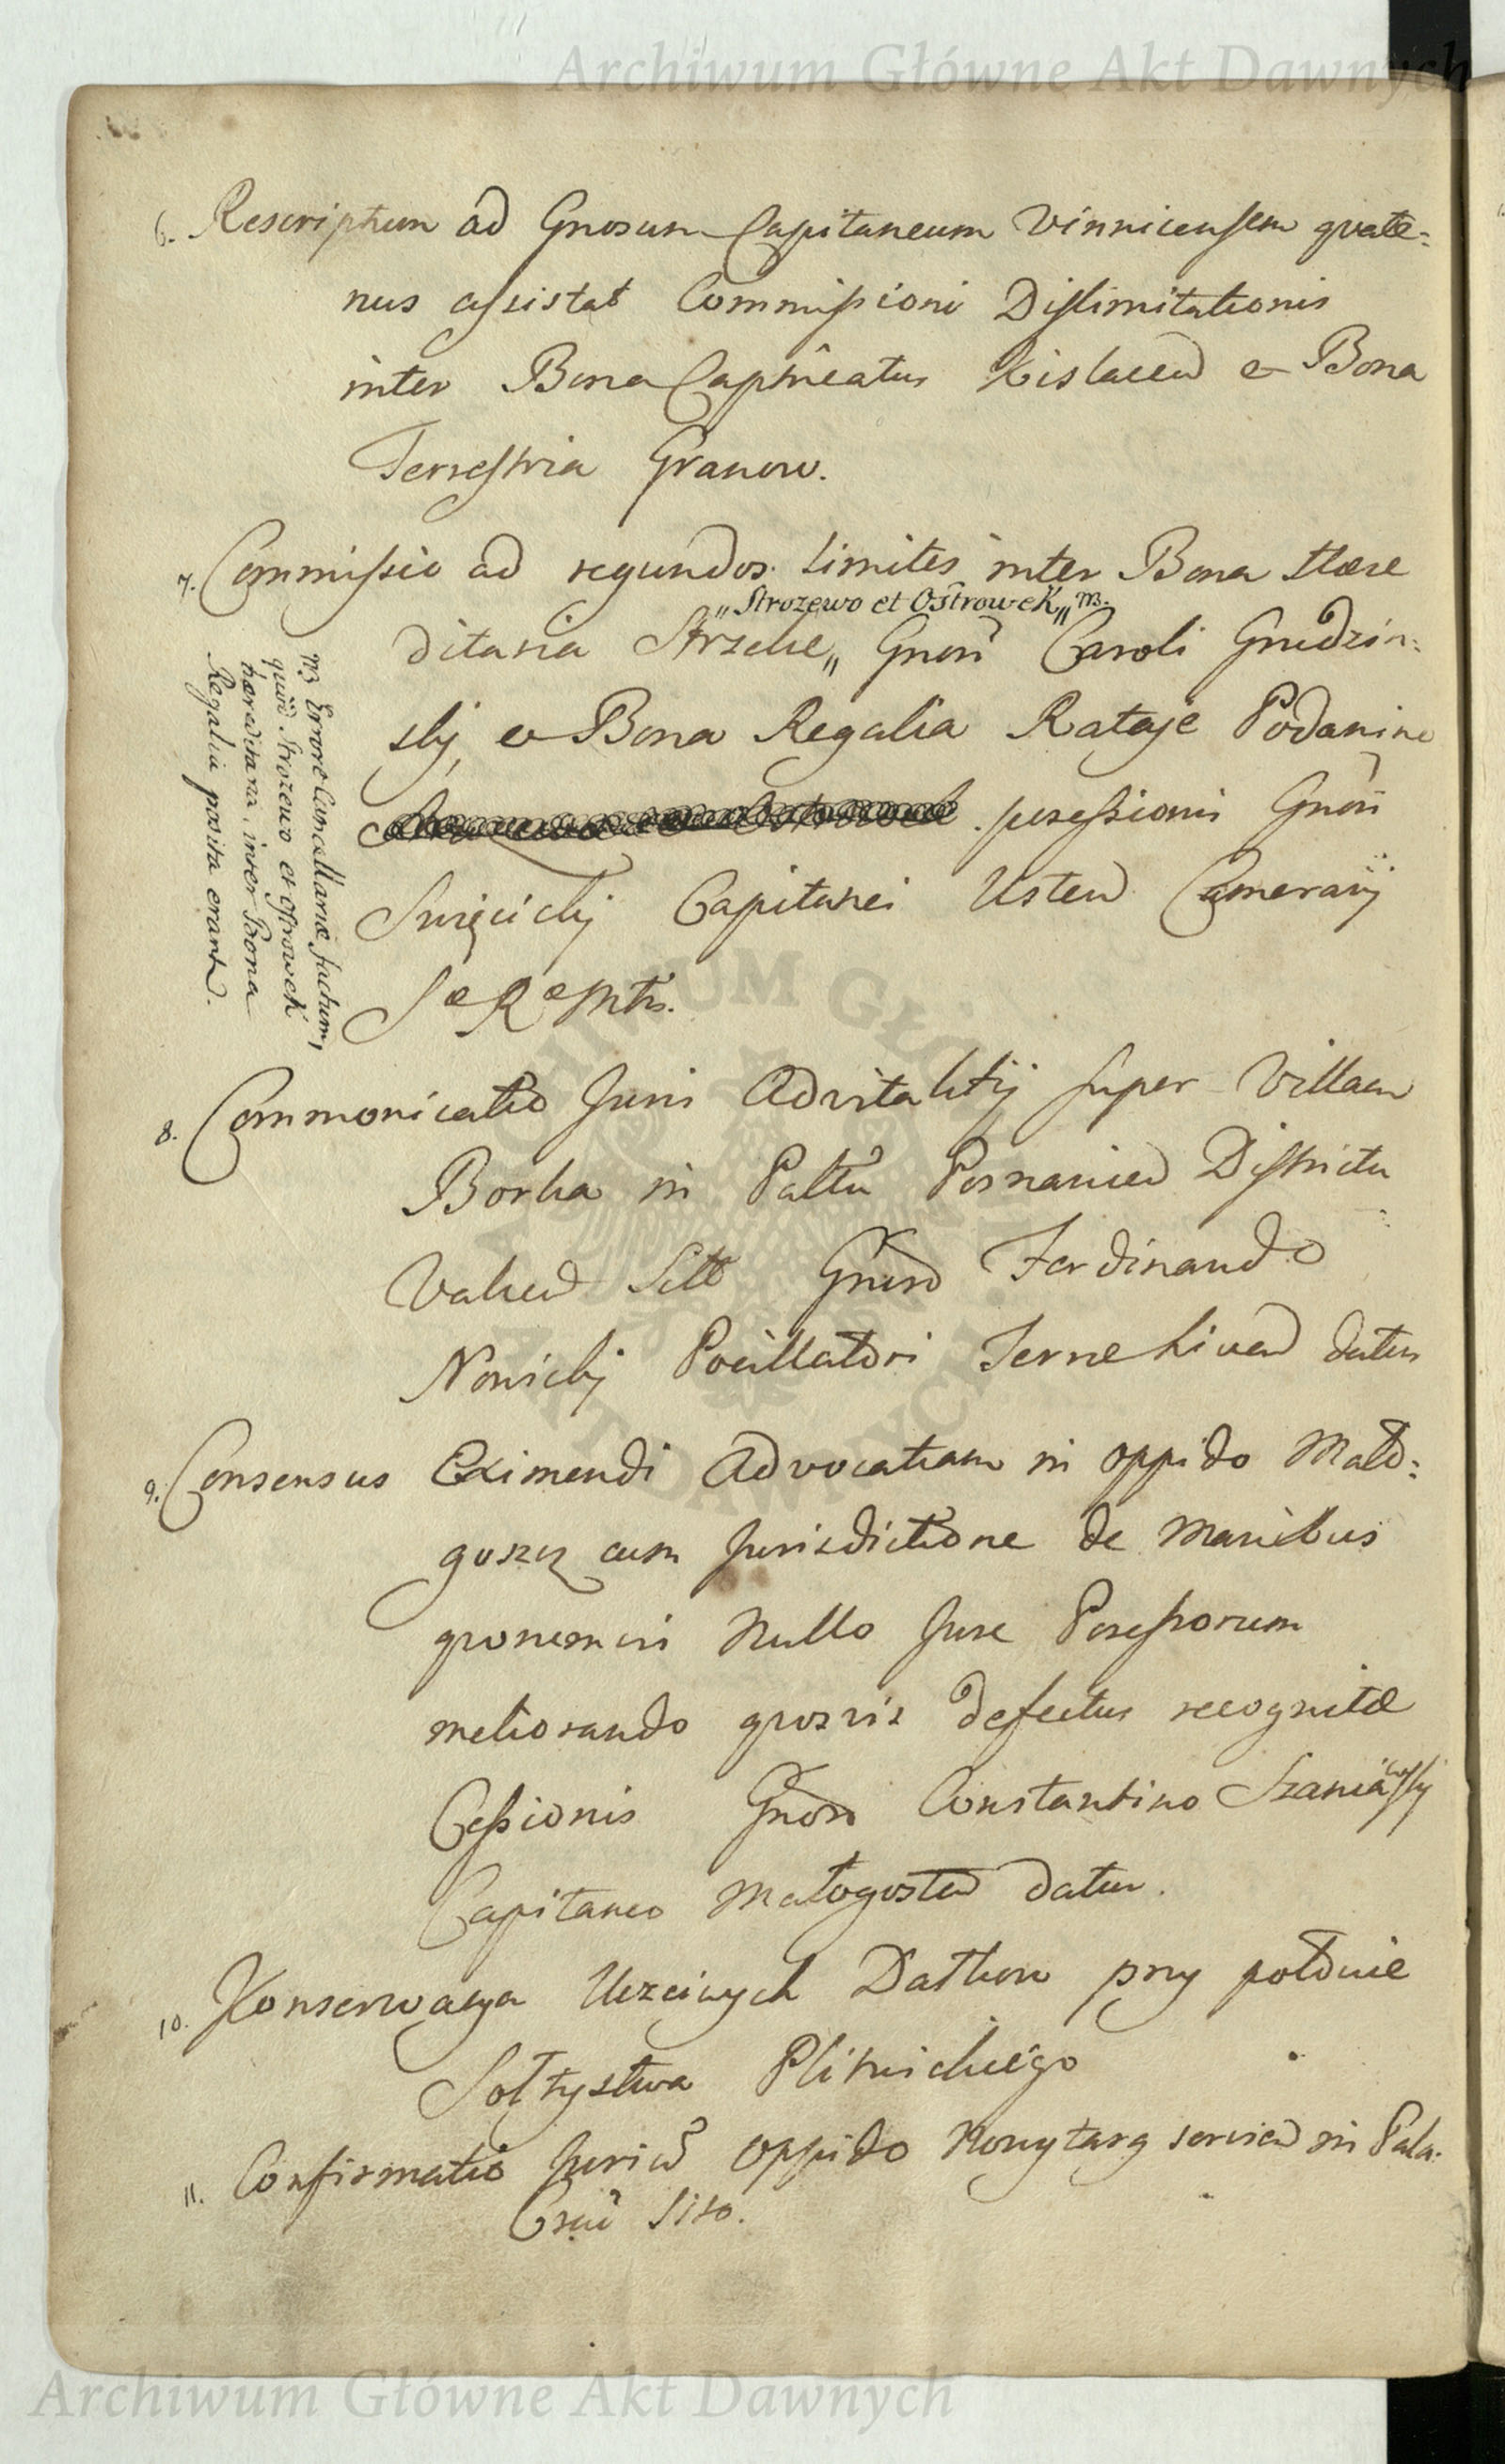 Archiwum Główne Akt Dawnych
6. Rescriptum ad Gnosum Capitaneum Vinnicensem quate=
nus assistat Commissioni Dislimitationis
inter Bona Capitneatus Kislacen & Bona
Terrestria Granow.
7. Commissio ad regundos limites inter Bona Hære
„Strozewo et Ostrowek„ NB.
ditaria Strzelce„ Gnosi Caroli Grudzin=
skij, et Bona Regalia Rataje Podanino
possessionis Gnosi
Swięcickij Capitanei Usten Camerarij
S æ R æ Mtis.
NB Errore Cancellariæ factum,
quod Strozewo et Ostrowek
hæreditaria, inter Bona
Regalia posita erant.
8. Commonicatio Juris Advitalitij super Villam
Borka in Palttu Posnanien Districtu
Valcen Sitt Gnoso Ferdinando
Nowickij Pocillatori Czernehoven datur
9. Consensus Eximendi Advocatiam in oppido Mało=
goszcz cum Jurisdictione de Manibus
quorumvis Nullo Jure Possessorum
meliorando quosvis defectus recognitæ
Cessionis Gnoso Constantino Szaniawskij
Capitaneo Małogosten datur.
10. Konserwacya Uczciwych Datkow przy połowie
Sołtystwa Plitnickiego
11. Confirmatio Jurium Oppido Nowytarg servien in Pala:
Crac̃ Sito.
ARCHIWUM GŁÓWNE AKT DAWNYCH
Archiwum Główne Akt Dawnych